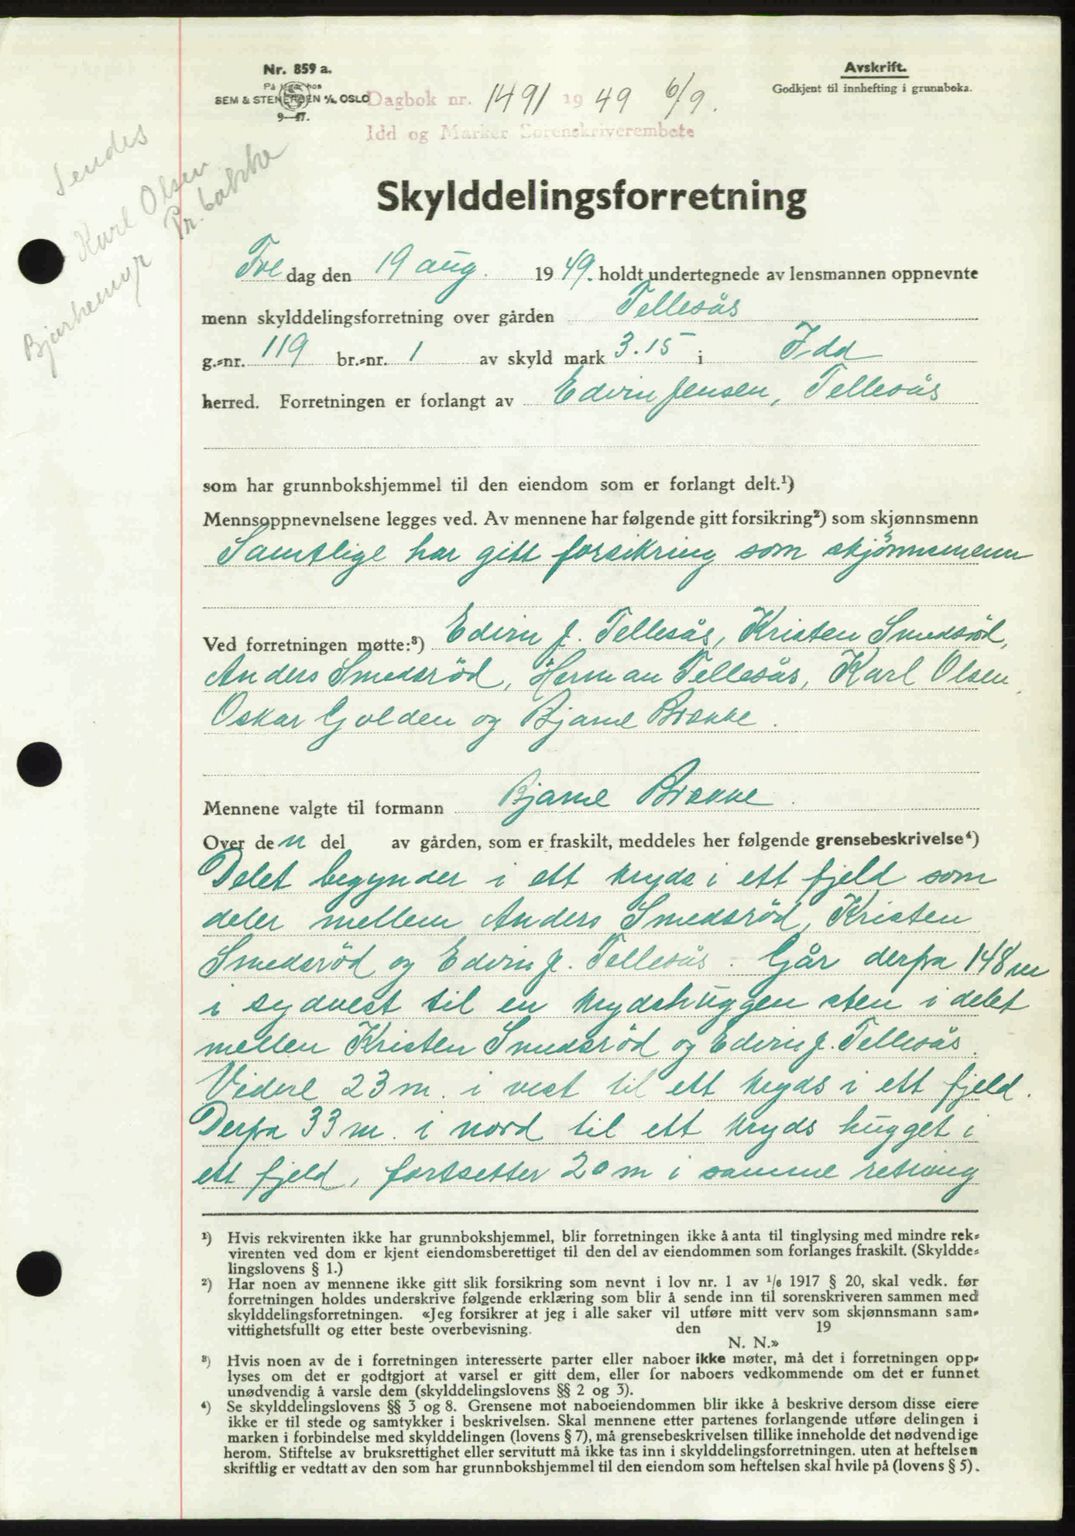 Nr. 859 a.
På lager hos
SEM & STENERSEN A/S, OSLO
9—47.
Avskrift.
Godkjent til innhefting i grunnboka.
Dagbok nr. 1491 1949 6/9.
Idd og Marker Sorenskriverembete
Sendes
Karl Olsen
Bjørkemyr
Pr. Bakke
Skylddelingsforretning
Fre dag den 19 aug. 1949. holdt undertegnede av lensmannen oppnevnte
menn skylddelingsforretning over gården Tellesås
g.-nr. 119 br.-nr. 1 av skyld mark 3.15 i Idd
herred. Forretningen er forlangt av Edvin Jensen, Tellesås
som har grunnbokshjemmel til den eiendom som er forlangt delt.¹)
Mennsoppnevnelsene legges ved. Av mennene har følgende gitt forsikring²) som skjønnsmenn
Samtlige har gitt forsikring som skjönnsmenn
Ved forretningen møtte:³) Edvin J. Tellesås, Kristen Smedsröd,
Anders Smedsröd, Herman Tellesås, Karl Olsen,
Oskar Golden og Bjarne Brekke.
Mennene valgte til formann Bjarne Brekke.
Over den del av gården, som er fraskilt, meddeles her følgende grensebeskrivelse⁴)
Delet begynder i ett kryds i ett fjeld som
deler mellem Anders Smedsröd, Kristen
Smedsröd og Edvin J. Tellesås. Går derfra 148 m
i sydvest til en krydshuggen sten i delet
mellen Kristen Smedsröd og Edvin J. Tellesås.
Videre 23 m. i vest til ett kryds i ett fjeld.
Derfra 33 m. i nord til ett kryds hugget i
ett fjeld, fortsetter 20 m i samme retning
¹) Hvis rekvirenten ikke har grunnbokshjemmel, blir forretningen ikke å anta til tinglysing med mindre rek-
virenten ved dom er kjent eiendomsberettiget til den del av eiendommen som forlanges fraskilt. (Skyldde-
lingslovens § 1.)
²) Har noen av mennene ikke gitt slik forsikring som nevnt i lov nr. 1 av ¹/₆ 1917 § 20, skal vedk. før
forretningen holdes underskrive følgende erklæring som blir å sende inn til sorenskriveren sammen med
skylddelingsforretningen. «Jeg forsikrer at jeg i alle saker vil utføre mitt verv som skjønnsmann sam-
vittighetsfullt og etter beste overbevisning. den 19
N. N.»
³) Hvis noen av de i forretningen interesserte parter eller naboer ikke møter, må det i forretningen opp-
lyses om det er godtgjort at varsel er gitt dem, eller for naboers vedkommende om det er funnet
unødvendig å varsle dem (skylddelingslovens §§ 2 og 3).
⁴) Se skylddelingslovens §§ 3 og 8. Grensene mot naboeiendommen blir ikke å beskrive dersom disse eiere
ikke er til stede og samtykker i beskrivelsen. Skal mennene etter partenes forlangende utføre delingen i
marken i forbindelse med skylddelingen (lovens § 7), må grensebeskrivelsen tillike inneholde det nødvendige
herom. Stiftelse av bruksrettighet eller servitutt må ikke tas inn i skylddelingsforretningen. uten at heftelsen
skriftlig er vedtatt av den som har grunnbokshjemmel til den eiendom som heftelsen skal hvile på (lovens § 5).